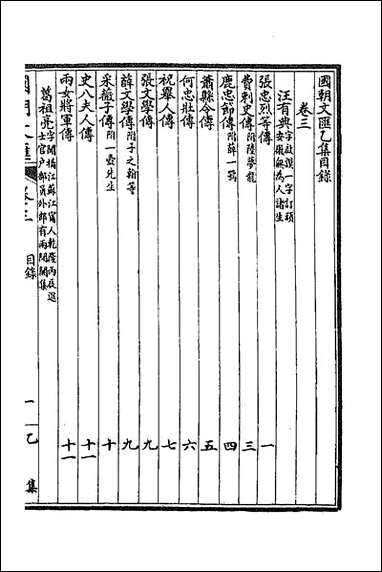 國朝文匯乙集目錄
卷三
汪有典 字啟謨一字訂頑安徽無為人諸生
張忠烈等傳 一
費刺史傳 附陸夢龍 三
鹿忠節傳 附薛一鶚 四
蕭縣令傳 五
何忠壯傳 六
祝舉人傳 七
張文學傳 九
薛文學傳 附子之翰等 九
采薇子傳 附一壺先生 十
史八夫人傳 十一
兩女將軍傳 十一
葛祖亮 字聞橋江蘇江甯人乾隆丙辰進士官戶部員外郎有兩間閣集
卷三 目錄 一 乙集